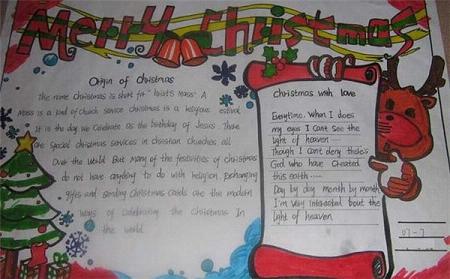 Merry Christmas
Origin of Christmas
The name Christmas is short for "Christ's Mass". A
Mass is a kind of Church service christmas is a religious estival
It is the day we Celebrate as the birthday of Jesus. There
are Special christmas services in christian Churches all
Over the World. But many of the festivities of Christmas
do not have anything to do with religion. Exchanging
gifts and sending Christmas Cards are the modern
Ways of Celebrating the Christmas In
the world.
Christmas with love
Everytime. When I does
my eyes I Cant see the
light of heaven
Though I can't deny there's
God who have Created
this earth......
Day by day month by month
I'm very intresded bout the
light of heaven
07-7